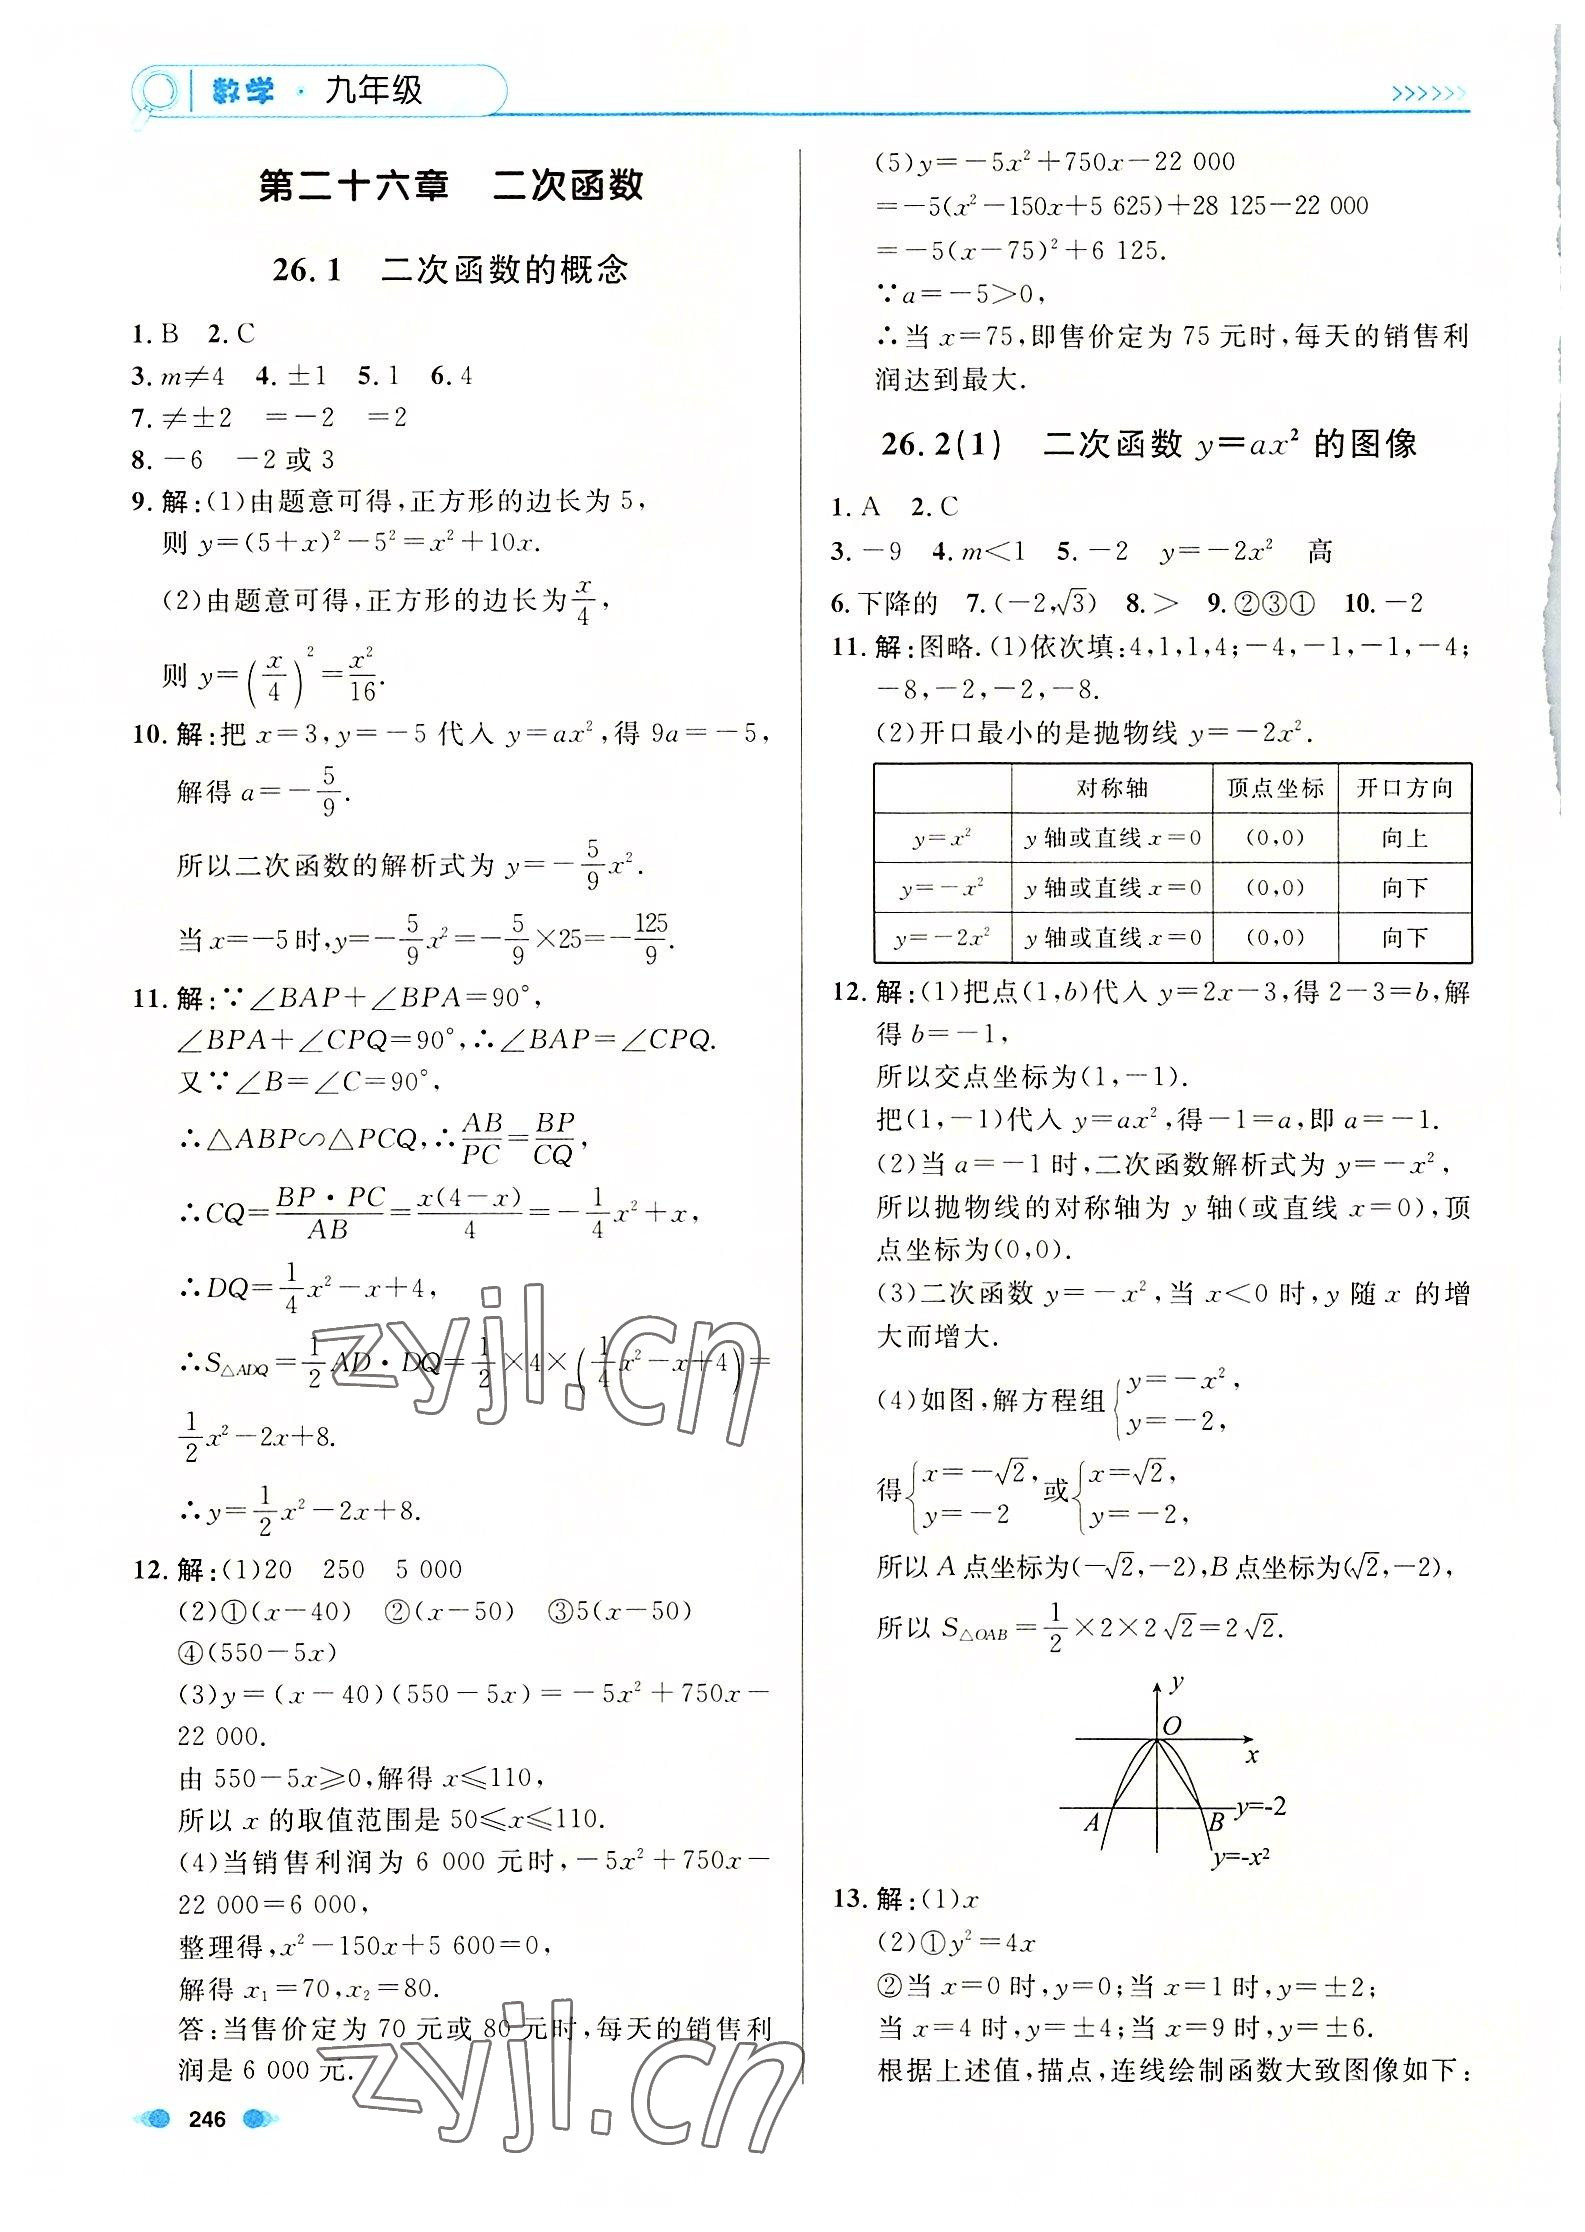 数学·九年级
>>>>>>
第二十六章 二次函数
26.1 二次函数的概念
1. B 2. C
3. m≠4 4. ±1 5. 1 6. 4
7. ≠±2 =-2 =2
8. -6 -2或3
9. 解:(1)由题意可得,正方形的边长为5,
则 y=(5+x)²-5²=x²+10x.
(2)由题意可得,正方形的边长为x/4,
则 y=(x/4)²=x²/16.
10. 解:把 x=3,y=-5 代入 y=ax²,得 9a=-5,
解得 a=-5/9.
所以二次函数的解析式为 y=-5/9x².
当x=-5时,y=-5/9x²=-5/9×25=-125/9.
11. 解:∵∠BAP+∠BPA=90°,
∠BPA+∠CPQ=90°,∴∠BAP=∠CPQ.
又∵∠B=∠C=90°,
∴△ABP∽△PCQ,∴AB/PC=BP/CQ,
∴CQ=BP·PC/AB=x(4-x)/4=-1/4x²+x,
∴DQ=1/4x²-x+4,
∴S△ADQ=1/2AD·DQ=1/2×4×(1/4x²-x+4)=
1/2x²-2x+8.
∴y=1/2x²-2x+8.
12. 解:(1)20 250 5 000
(2)①(x-40) ②(x-50) ③5(x-50)
④(550-5x)
(3)y=(x-40)(550-5x)=-5x²+750x-
22 000.
由 550-5x≥0,解得 x≤110,
所以 x 的取值范围是 50≤x≤110.
(4)当销售利润为 6 000 元时,-5x²+750x-
22 000=6 000,
整理得,x²-150x+5 600=0,
解得 x₁=70,x₂=80.
答:当售价定为 70 元或 80 元时,每天的销售利
润是 6 000 元.
(5)y=-5x²+750x-22 000
=-5(x²-150x+5 625)+28 125-22 000
=-5(x-75)²+6 125.
∵a=-5>0,
∴当 x=75,即售价定为 75 元时,每天的销售利
润达到最大.
26.2(1) 二次函数 y=ax² 的图像
1. A 2. C
3. -9 4. m<1 5. -2 y=-2x² 高
6. 下降的 7. (-2,√3) 8. > 9. ②③① 10. -2
11. 解:图略.(1)依次填:4,1,1,4;-4,-1,-1,-4;
-8,-2,-2,-8.
(2)开口最小的是抛物线 y=-2x².
对称轴 顶点坐标 开口方向
y=x² y 轴或直线 x=0 (0,0) 向上
y=-x² y 轴或直线 x=0 (0,0) 向下
y=-2x² y 轴或直线 x=0 (0,0) 向下
12. 解:(1)把点(1,b)代入 y=2x-3,得 2-3=b,解
得 b=-1,
所以交点坐标为(1,-1).
把(1,-1)代入 y=ax²,得-1=a,即 a=-1.
(2)当 a=-1 时,二次函数解析式为 y=-x²,
所以抛物线的对称轴为 y 轴(或直线 x=0),顶
点坐标为(0,0).
(3)二次函数 y=-x²,当 x<0 时,y 随 x 的增
大而增大.
(4)如图,解方程组{y=-x²,
y=-2,
得{x=-√2, 或{x=√2,
y=-2 y=-2,
所以 A 点坐标为(-√2,-2),B 点坐标为(√2,-2),
所以 S△OAB=1/2×2×2√2=2√2.
y
O
x
A B y=-2
y=-x²
13. 解:(1)x
(2)①y²=4x
②当 x=0 时,y=0;当 x=1 时,y=±2;
当 x=4 时,y=±4;当 x=9 时,y=±6.
根据上述值,描点,连线绘制函数大致图像如下:
zyjl.cn
zyjl.cn
246